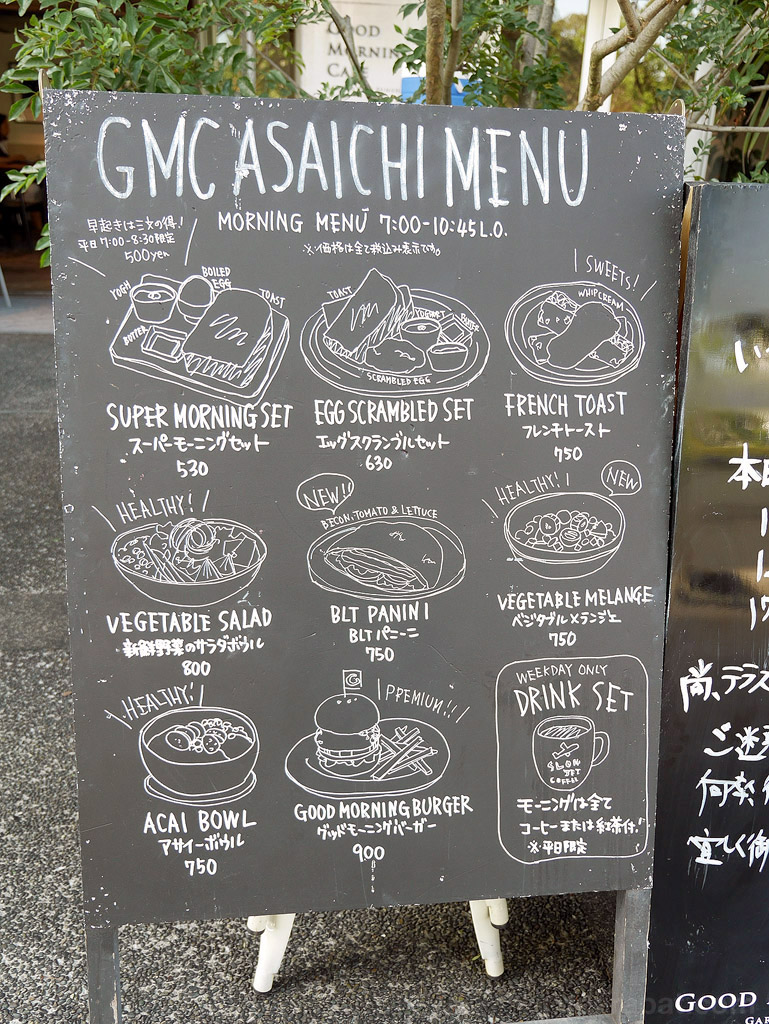 GOOD
MORNING
CAFE
GMC ASAICHI MENU
早起きは三文の得!
平日7:00-8:30限定
500yen
MORNING MENU 7:00-10:45 L.O.
※価格は全て税込み表示です。
YOGH
BOILED
EGG
TOAST
BUTTER
SUPER MORNING SET
スーパーモーニングセット
530
TOAST
YOGHURT
BUTTER
SCRAMBLED EGG
EGG SCRAMBLED SET
エッグスクランブルセット
630
SWEETS!
WHIPCREAM
FRENCH TOAST
フレンチトースト
750
HEALTHY!
VEGETABLE SALAD
新鮮野菜のサラダボウル
800
NEW!!
BECON, TOMATO & LETTUCE
BLT PANINI
BLTパニーニ
750
HEALTHY!
NEW
VEGETABLE MELANGE
ベジタブル×ランジェ
750
HEALTHY!
ACAI BOWL
アサイーボウル
750
G
PREMIUM!!
GOOD MORNING BURGER
グッドモーニングバーガー
900
WEEKDAY ONLY
DRINK SET
SLOW
JET
COFFEE
モーニングは全て
コーヒーまたは紅茶付!
※平日限定
い
本日
17
尚、テラス
ご迷
何卒
宜しく御
GOOD
GAR